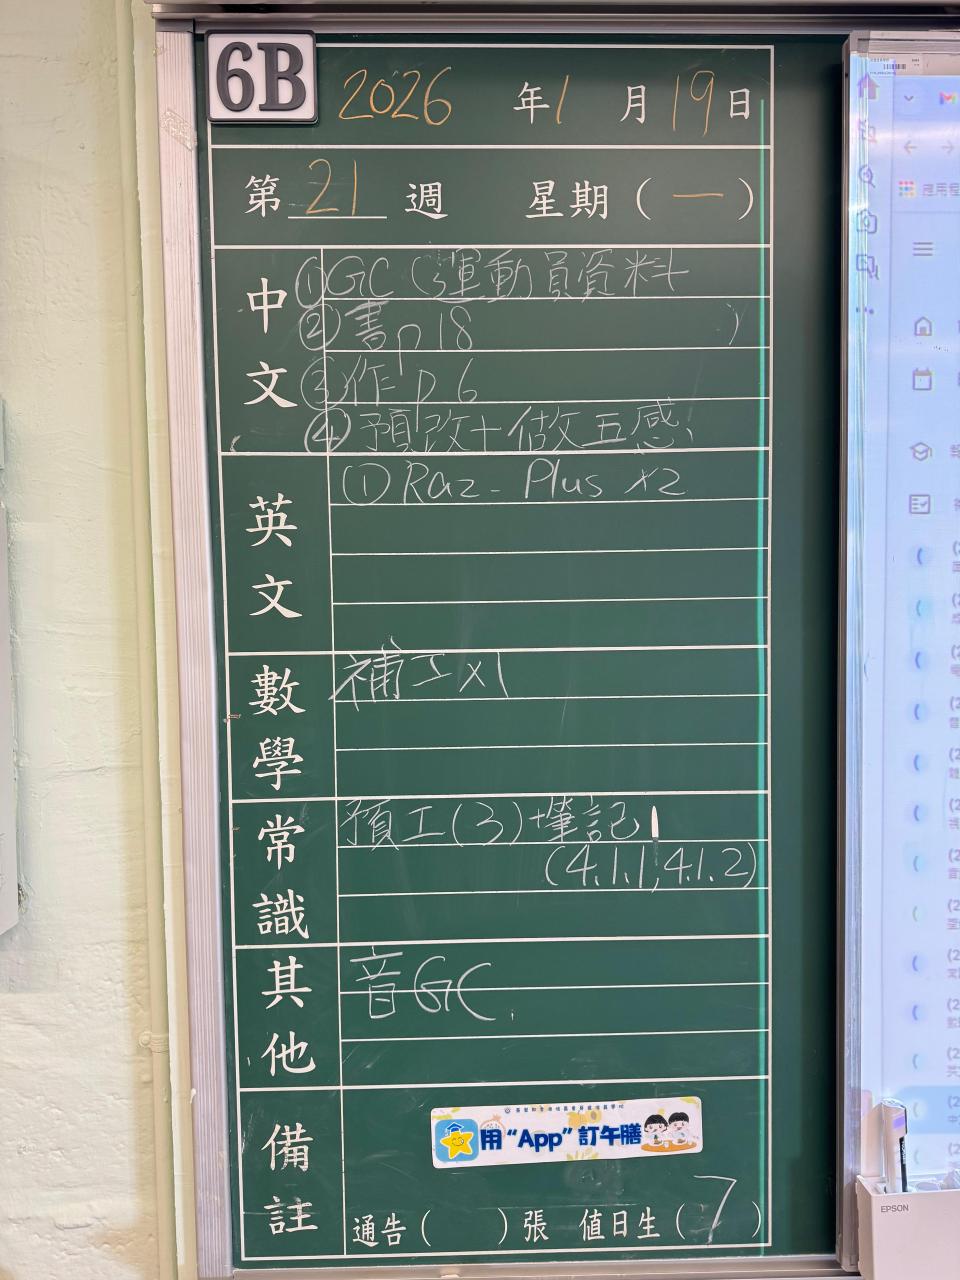 6B
2026年1月19日
第21週 星期(一)
中文
①GC(3運動員資料
②書p18 )
③作p6
④預改+做五感
英文
①Raz-Plus x2
數學
補工x1
常識
預工(3)+筆記
(4.1.1,4.1.2)
其他
音GC
備註
用“App”訂午膳
通告( )張 值日生(7)
EPSON